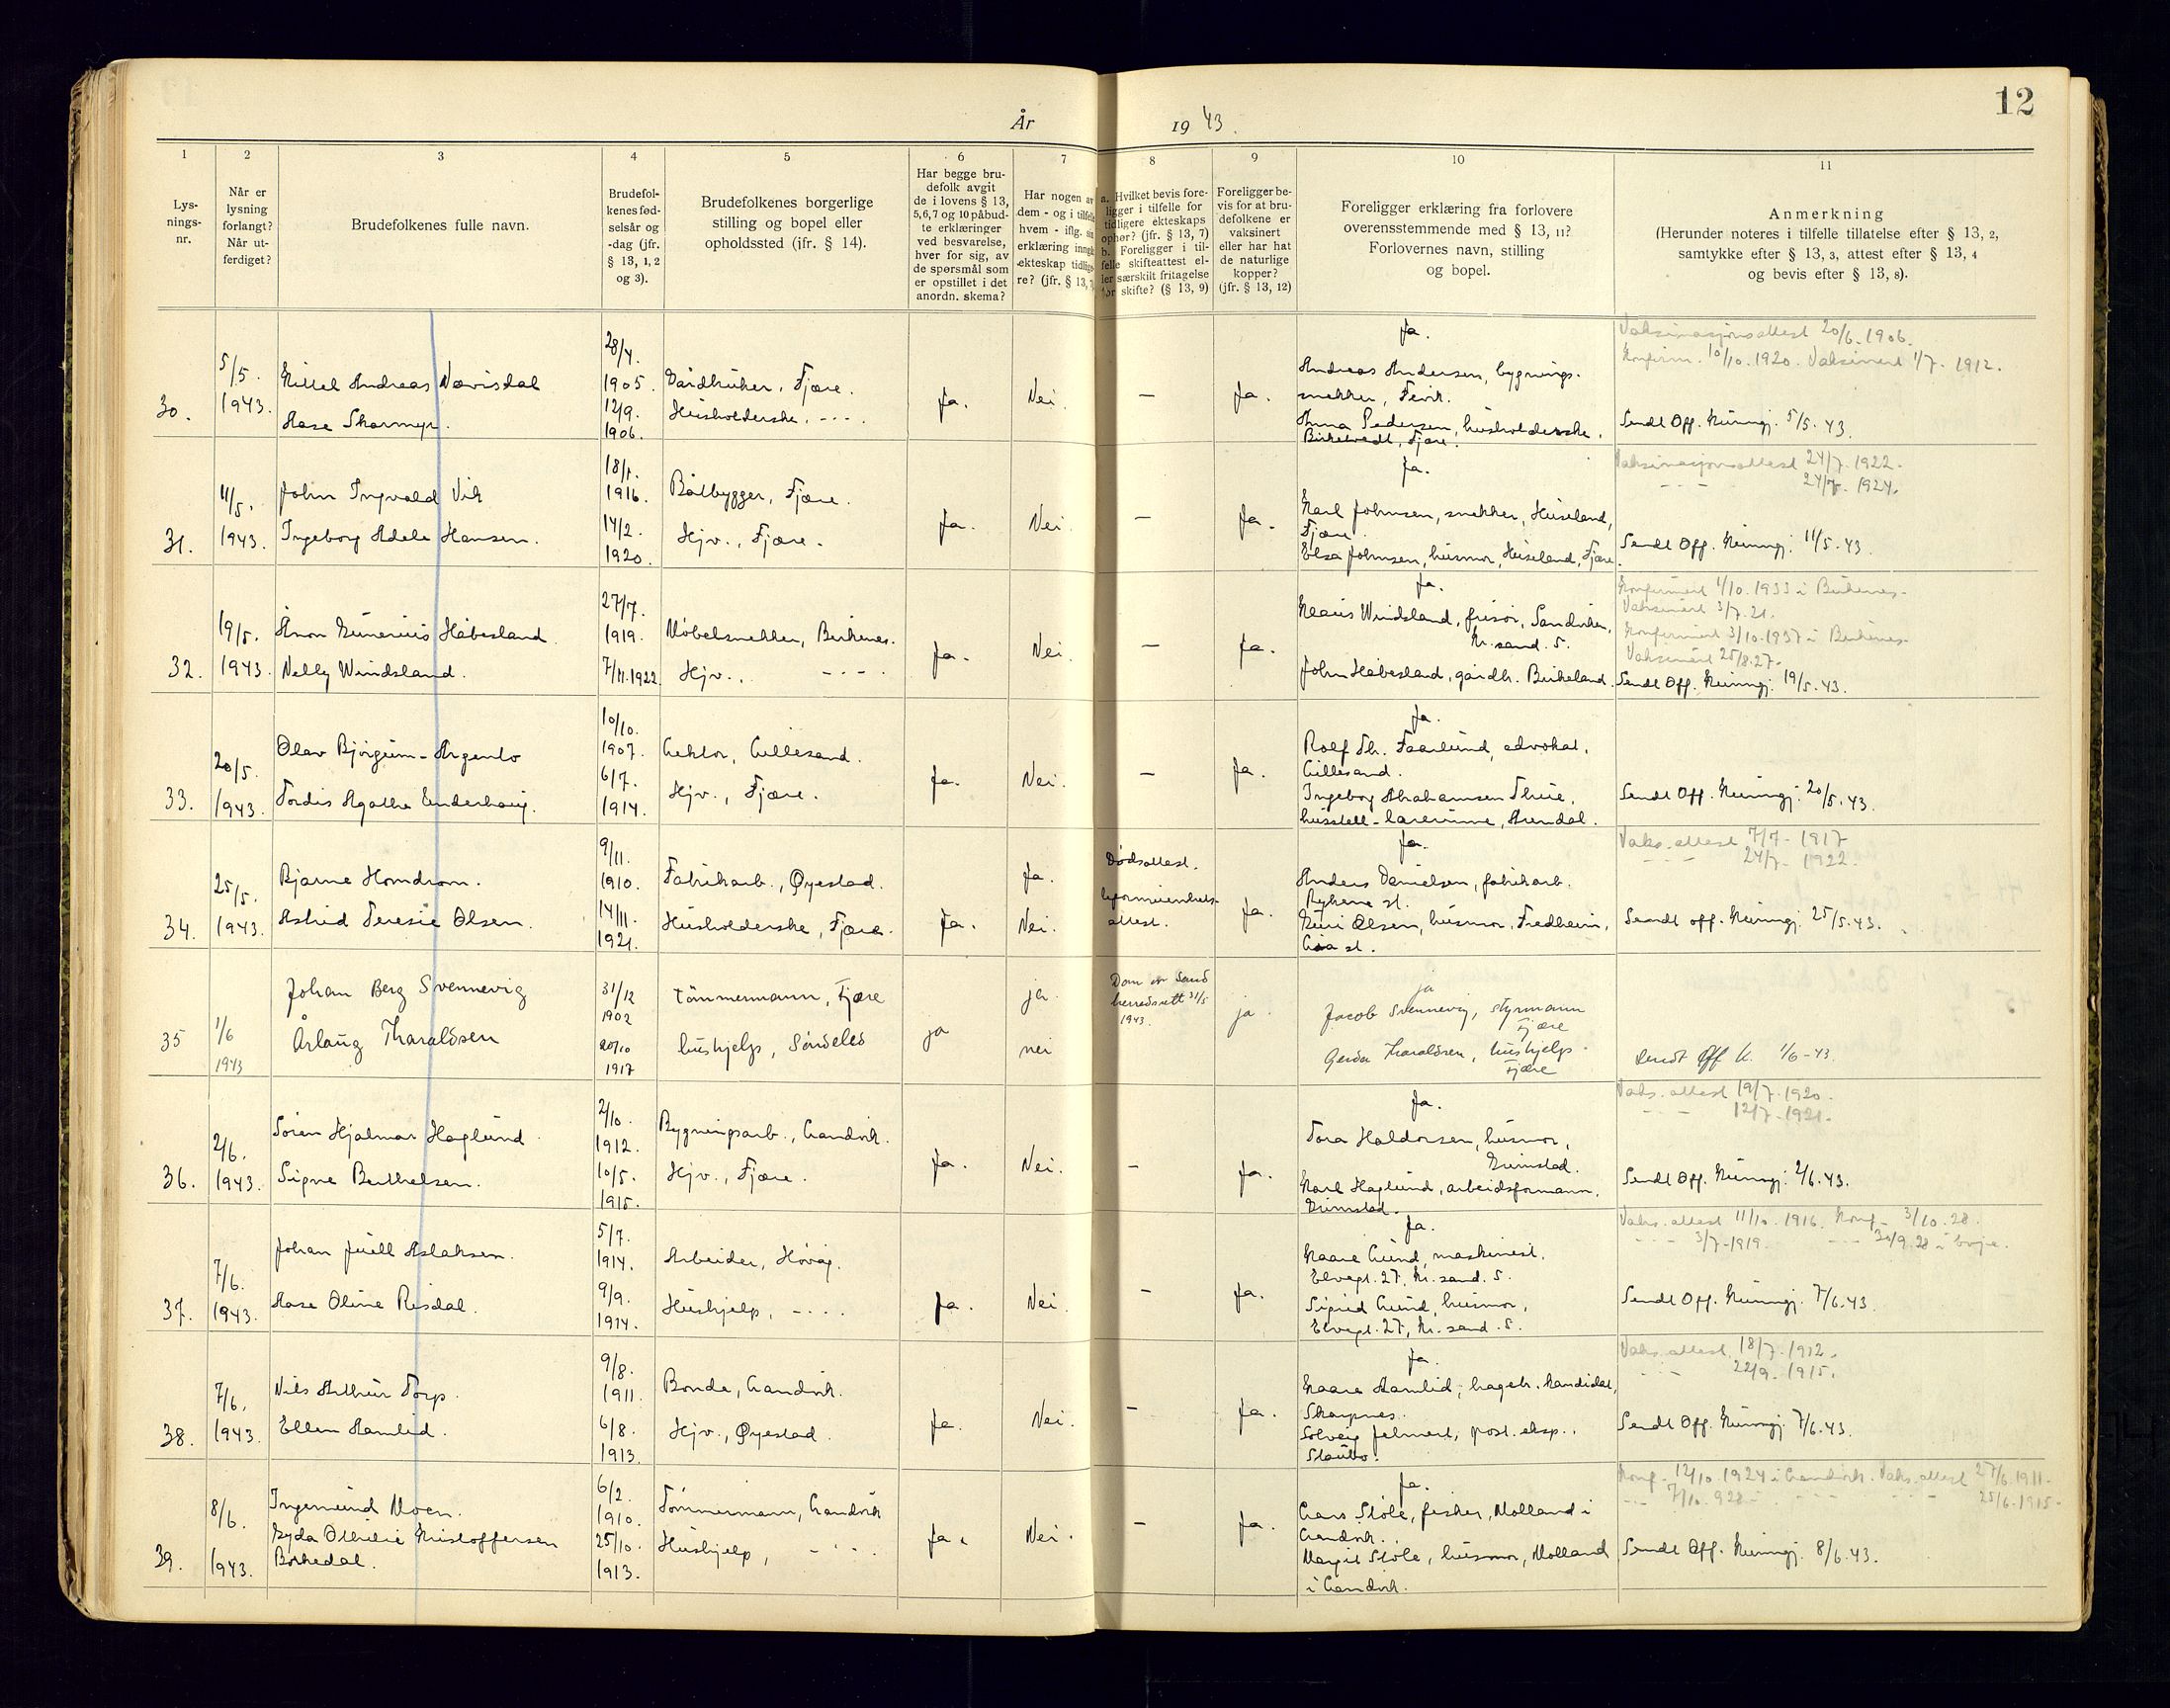 12
År 1943.
1 2 3 4 5 6 7 8 9 10 11
Lys-
nings-
nr.
Når er
lysning
forlangt?
Når ut-
ferdiget?
Brudefolkenes fulle navn.
Brudefol-
kenes fød-
selsår og
-dag (jfr.
§ 13, 1, 2
og 3).
Brudefolkenes borgerlige
stilling og bopel eller
opholdssted (jfr. § 14).
Har begge bru-
defolk avgit
de i lovens § 13,
5,6,7 og 10 påbud-
te erklæringer
ved besvarelse,
hver for sig, av
de spørsmål som
er opstillet i det
anordn. skema?
Har nogen av
dem - og i tilfelle
hvem - iflg. sin
erklæring inngåt
ekteskap tidlige-
re? (jfr. § 13,
a. Hvilket bevis fore-
ligger i tilfelle for
tidligere ekteskaps
ophør? (jfr. § 13, 7)
b. Foreligger i til-
felle skifteattest el-
ler særskilt fritagelse
for skifte? (§ 13, 9)
Foreligger be-
vis for at bru-
defolkene er
vaksinert
eller har hat
de naturlige
kopper?
(jfr. § 13, 12)
Foreligger erklæring fra forlovere
overensstemmende med § 13, 11?
Forlovernes navn, stilling
og bopel.
Anmerkning
(Herunder noteres i tilfelle tillatelse efter § 13, 2,
samtykke efter § 13, 3, attest efter § 13, 4
og bevis efter § 13, 8).
30.
5/5.
1943.
Kittel Andreas Nævisdal
Aase Skarmyr.
28/4.
1905.
12/9.
1906.
Gårdbruker, Fjære.
Husholderske, - · -
Ja.
Nei.
—
Ja.
Ja.
Andreas Andersen, bygnings-
snekker, Fevik.
Anna Pedersen, husholderske,
Birketvedt, Fjære.
Vaksinasjonsattest 20/6. 1906.
Konfirm. 10/10. 1920. Vaksinert 1/7. 1912.
Sendt Off. Kunngj. 5/5. 43.
31.
11/5.
1943.
John Ingvald Vik
Ingeborg Adele Hansen.
18/1.
1916.
14/2.
1920.
Båtbygger, Fjære.
Hjv., Fjære.
Ja.
Nei.
—
Ja.
Ja.
Karl Johnsen, snekker, Huseland,
Fjære.
Elsa Johnsen, husmor, Huseland, Fjære.
Vaksinasjonsattest 24/7. 1922.
- · - 24/7. 1924.
Sendt Off. Kunngj. 11/5. 43.
32.
19/5.
1943.
Anon Gunerius Håbesland.
Nelly Windsland.
27/7.
1919.
7/11.1922.
Møbelsnekker, Birkenes.
Hjv., - · -
Ja.
Nei.
—
Ja.
Ja.
Klaus Windsland, frisør, Sandviken,
Kr. sand. S.
John Håbesland, gårdb. Birkeland.
Konfirmert 1/10. 1933 i Birkenes.
Vaksinert 3/7. 21.
Konfirmert 3/10. 1937 i Birkenes.
Vaksinert 25/8. 27.
Sendt Off. Kunngj. 19/5. 43.
33.
20/5.
1943.
Olav Bjørgum-Argento
Tordis Agathe Enderhaug.
10/10.
1907.
6/7.
1914.
Lektor, Lillesand.
Hjv., Fjære.
Ja.
Nei.
—
Ja.
Ja.
Rolf Th. Faarlund, advokat,
Lillesand.
Ingeborg Abrahamsen Thue,
husstell-lærerinne, Arendal.
Sendt Off. Kunngj. 20/5. 43.
34.
25/5.
1943.
Bjarne Homdrom.
Astrid Teresie Olsen.
9/11.
1910.
14/11.
1921.
Fabrikarb., Øyestad.
Husholderske, Fjære.
Ja.
Ja.
Nei.
Dødsattest.
Uformuenhets-
attest.
Ja.
Ja.
Anders Danielsen, fabrikarb.
Rykene st.
Guri Olsen, husmor, Fredheim,
Lia st.
Vaks. attest 7/7 - 1917
- · - 24/7 - 1922.
Sendt off. Kunngj. 25/5. 43.
35
1/6
1943
Johan Berg Svennevig
Årlaug Tharaldsen
31/12
1902
20/10
1917
tømmermann, Fjære
hushjelp, Søndeled
ja
ja.
nei
Dom av Sand
herredsrett 31/5
1943.
ja
ja
Jacob Svennevig, styrmann
Fjære
Gerda Tharaldsen, hushjelp
Fjære
Sendt Off K. 1/6 - 43
36.
2/6.
1943.
Søren Hjalmar Haglund.
Signe Berthelsen.
2/10.
1912.
10/5.
1915.
Bygningsarb., Landvik.
Hjv., Fjære.
Ja.
Nei.
—
Ja.
Ja.
Tora Haldorsen, husmor,
Grimstad.
Karl Haglund, arbeidsformann,
Grimstad.
Vaks. attest 19/7. 1920.
- · - 12/7. 1921.
Sendt Off. Kunngj. 2/6. 43.
37.
7/6.
1943.
Johan Juell Aslaksen.
Aase Oline Risdal.
5/7.
1914.
9/9.
1914.
Arbeider, Høvåg.
Hushjelp, - · -
Ja.
Nei.
—
Ja.
Ja.
Kaare Lund, maskinist.
Elvegt. 27, Kr. sand. S.
Sigrid Lund, husmor,
Elvegt. 27, Kr. sand. S.
Vaks. attest 11/10. 1916. Konf. 3/10. 28.
- · - 3/7 - 1919. - · - 30/9. 28 i Evje.
Sendt Off. Kunngj. 7/6. 43.
38.
7/6.
1943.
Nils Arthur Torp.
Ellen Aamlid.
9/8.
1911.
6/8.
1913.
Bonde, Landvik.
Hjv., Øyestad.
Ja.
Nei.
—
Ja.
Ja.
Kaare Aamlid, hagebr. kandidat,
Skarpnes.
Solveig Jelmert, post. eksp.,
Staubø.
Vaks. attest 18/7. 1912.
- · - 22/9. 1915.
Sendt Off. Kunngj. 7/6. 43.
39.
8/6.
1943.
Ingemund Moen.
Gyda Othilie Kristoffersen
Borkedal.
6/2.
1910.
25/10.
1913.
Tømmermann, Landvik
Hushjelp, - · -
Ja.
Nei.
—
Ja.
Ja.
Lars Støle, fisker, Molland i
Landvik.
Margit Støle, husmor, Molland
i Landvik.
Konf. 12/10. 1924 i Landvik. Vaks. attest 27/6. 1911.
- · - 7/10. 928 - · - 25/6. 1915.
Sendt Off. Kunngj. 8/6. 43.